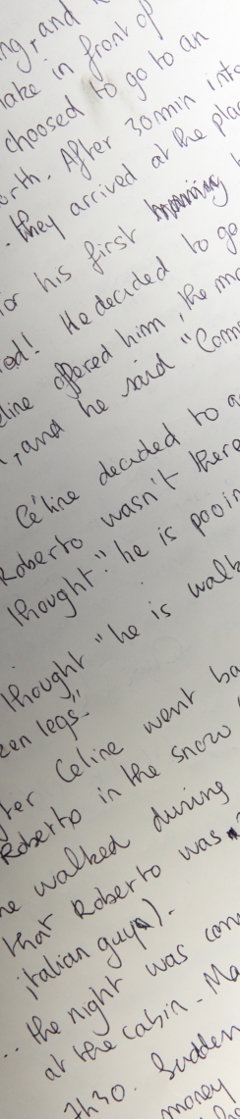 ng, and
lake in front of
choosed to go to an
orth. After 30min into
. they arrived at the pla
or his first
ed! He decided to go
line offered him, the mo
, and he said "Com
Céline decided to a
Roberto wasn't there
thought:" he is pooin
thought "he is walk
zen legs"
ter Celine went ba
Roberto in the snow
he walked during
that Roberto was
italian guy).
.. the night was com
at the cabin. Ma
7h30. Sudden
money